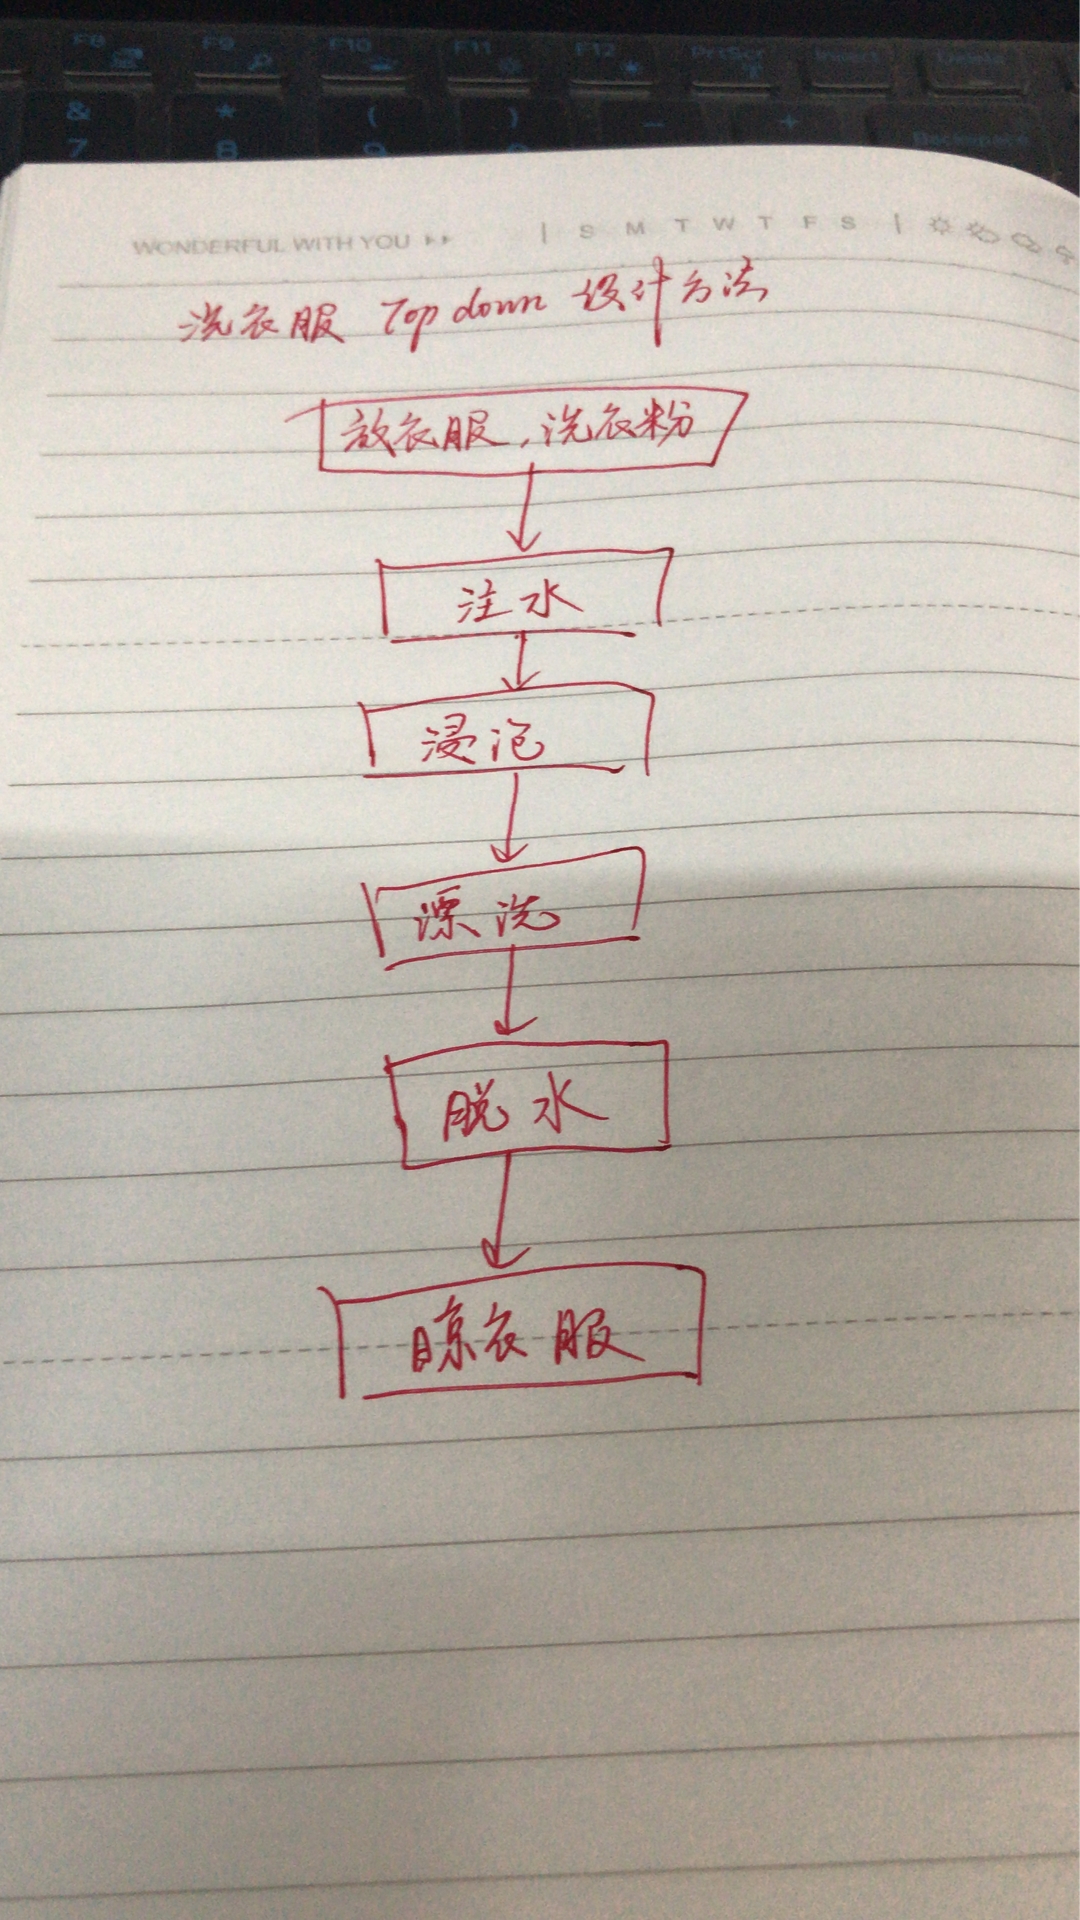 F8 F9 F10 F11 F12 PrtScr Insert Delete
& * ( ) _ +
7 8 9 Backspace
WONDERFUL WITH YOU | S M T W T F S |
洗衣服 Top down 设计方法
放衣服，洗衣粉
注水
浸泡
漂洗
脱水
晾衣服